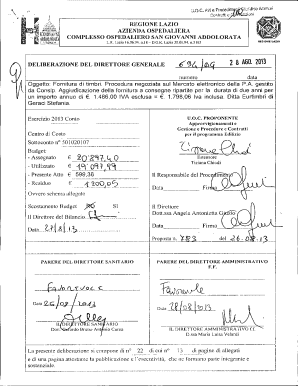 REGIONE LAZIO
AZIENDA OSPEDALIERA
COMPLESSO OSPEDALIERO SAN GIOVANNI ADDOLORATA
DELIBERAZIONE DEL DIRETTORE GENERALE
28 AGO. 2013
numero data
Oggetto: Fornitura di timbri. Procedura negoziata sul Mercato elettronico della P.A. gestito
da Consip. Aggiudicazione della fornitura a consegne ripartite per la durata di due anni per
un importo annuo di € 1.486,00 IVA esclusa = € 1.798,06 Iva inclusa. Ditta Eurtimbri di
Geraci Stefania.
Esercizio 2013 Conto
Centro di Costo
Sottoconto n° 501020107
Budget:
- Assegnato € 20897,40
- Utilizzato € 19097,99
- Presente Atto € 599,36
- Residuo € 1200,05
Ovvero schema allegato
Scostamento Budget NO SI
Il Direttore del Bilancio
Data 27/8/13
U.O.C. PROPONENTE
Approvvigionamenti
Gestione e Procedure e Contratti
per il programma Edilizio
Estensore
Tiziana Chiodi
Il Responsabile del Procedimento
Data Firma
Il Direttore
Dott.ssa Angela Antonietta Giuzio
Data Firma
Proposta n. 783 del 26.08.13
PARERE DEL DIRETTORE SANITARIO
Favorevole
Data
IL DIRETTORE SANITARIO
PARERE DEL DIRETTORE AMMINISTRATIVO
F.F.
Favorevole
Data 28/08/2013
IL DIRETTORE AMMINISTRATIVO f.f.
D.ssa Maria Luisa Velardi
La presente deliberazione si compone di n° 22 di cui n° 13 di pagine di allegati
e di una pagina attestante la pubblicazione e l'esecutività, che ne formano parte integrante e
sostanziale.